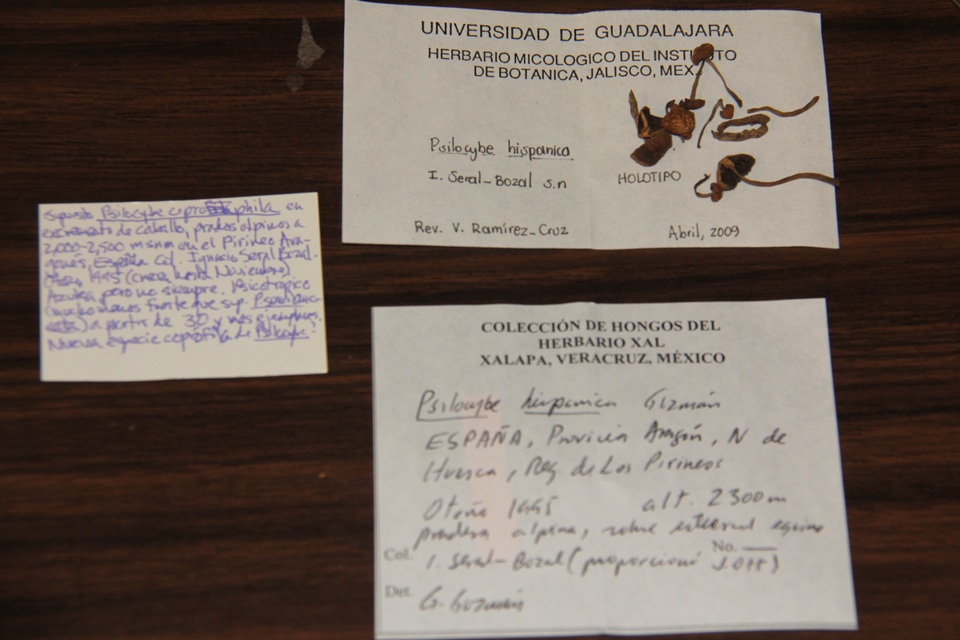 UNIVERSIDAD DE GUADALAJARA
HERBARIO MICOLOGICO DEL INSTITUTO
DE BOTANICA, JALISCO, MEX.
Psilocybe hispanica
I. Seral-Bozal s.n
HOLOTIPO
Rev. V. Ramírez-Cruz
Abril, 2009
supuesto Psilocybe coprophila en
excremento de caballo, prados alpinos a
2,000-2,500 msnm en el Pirineo Ara-
gonés, España Col. Ignacio Seral Bozal.
Otoño 1995 (crece hasta Noviembre)
Azulea pero no siempre. Psicotrópico
(mucho menos fuerte que sup.
a partir de 30 y más ejemplares.
Nueva especie coprófila de Psilocybe?
COLECCIÓN DE HONGOS DEL
HERBARIO XAL
XALAPA, VERACRUZ, MÉXICO
Psilocybe hispanica Guzmán
ESPAÑA, Provincia Aragón, N de
Huesca, Reg. de Los Pirineos
Otoño 1995 alt. 2300 m
pradera alpina, sobre estiercol equino
Col. I. Seral-Bozal (proporcionó J. Ott) No.
Det. G. Guzmán